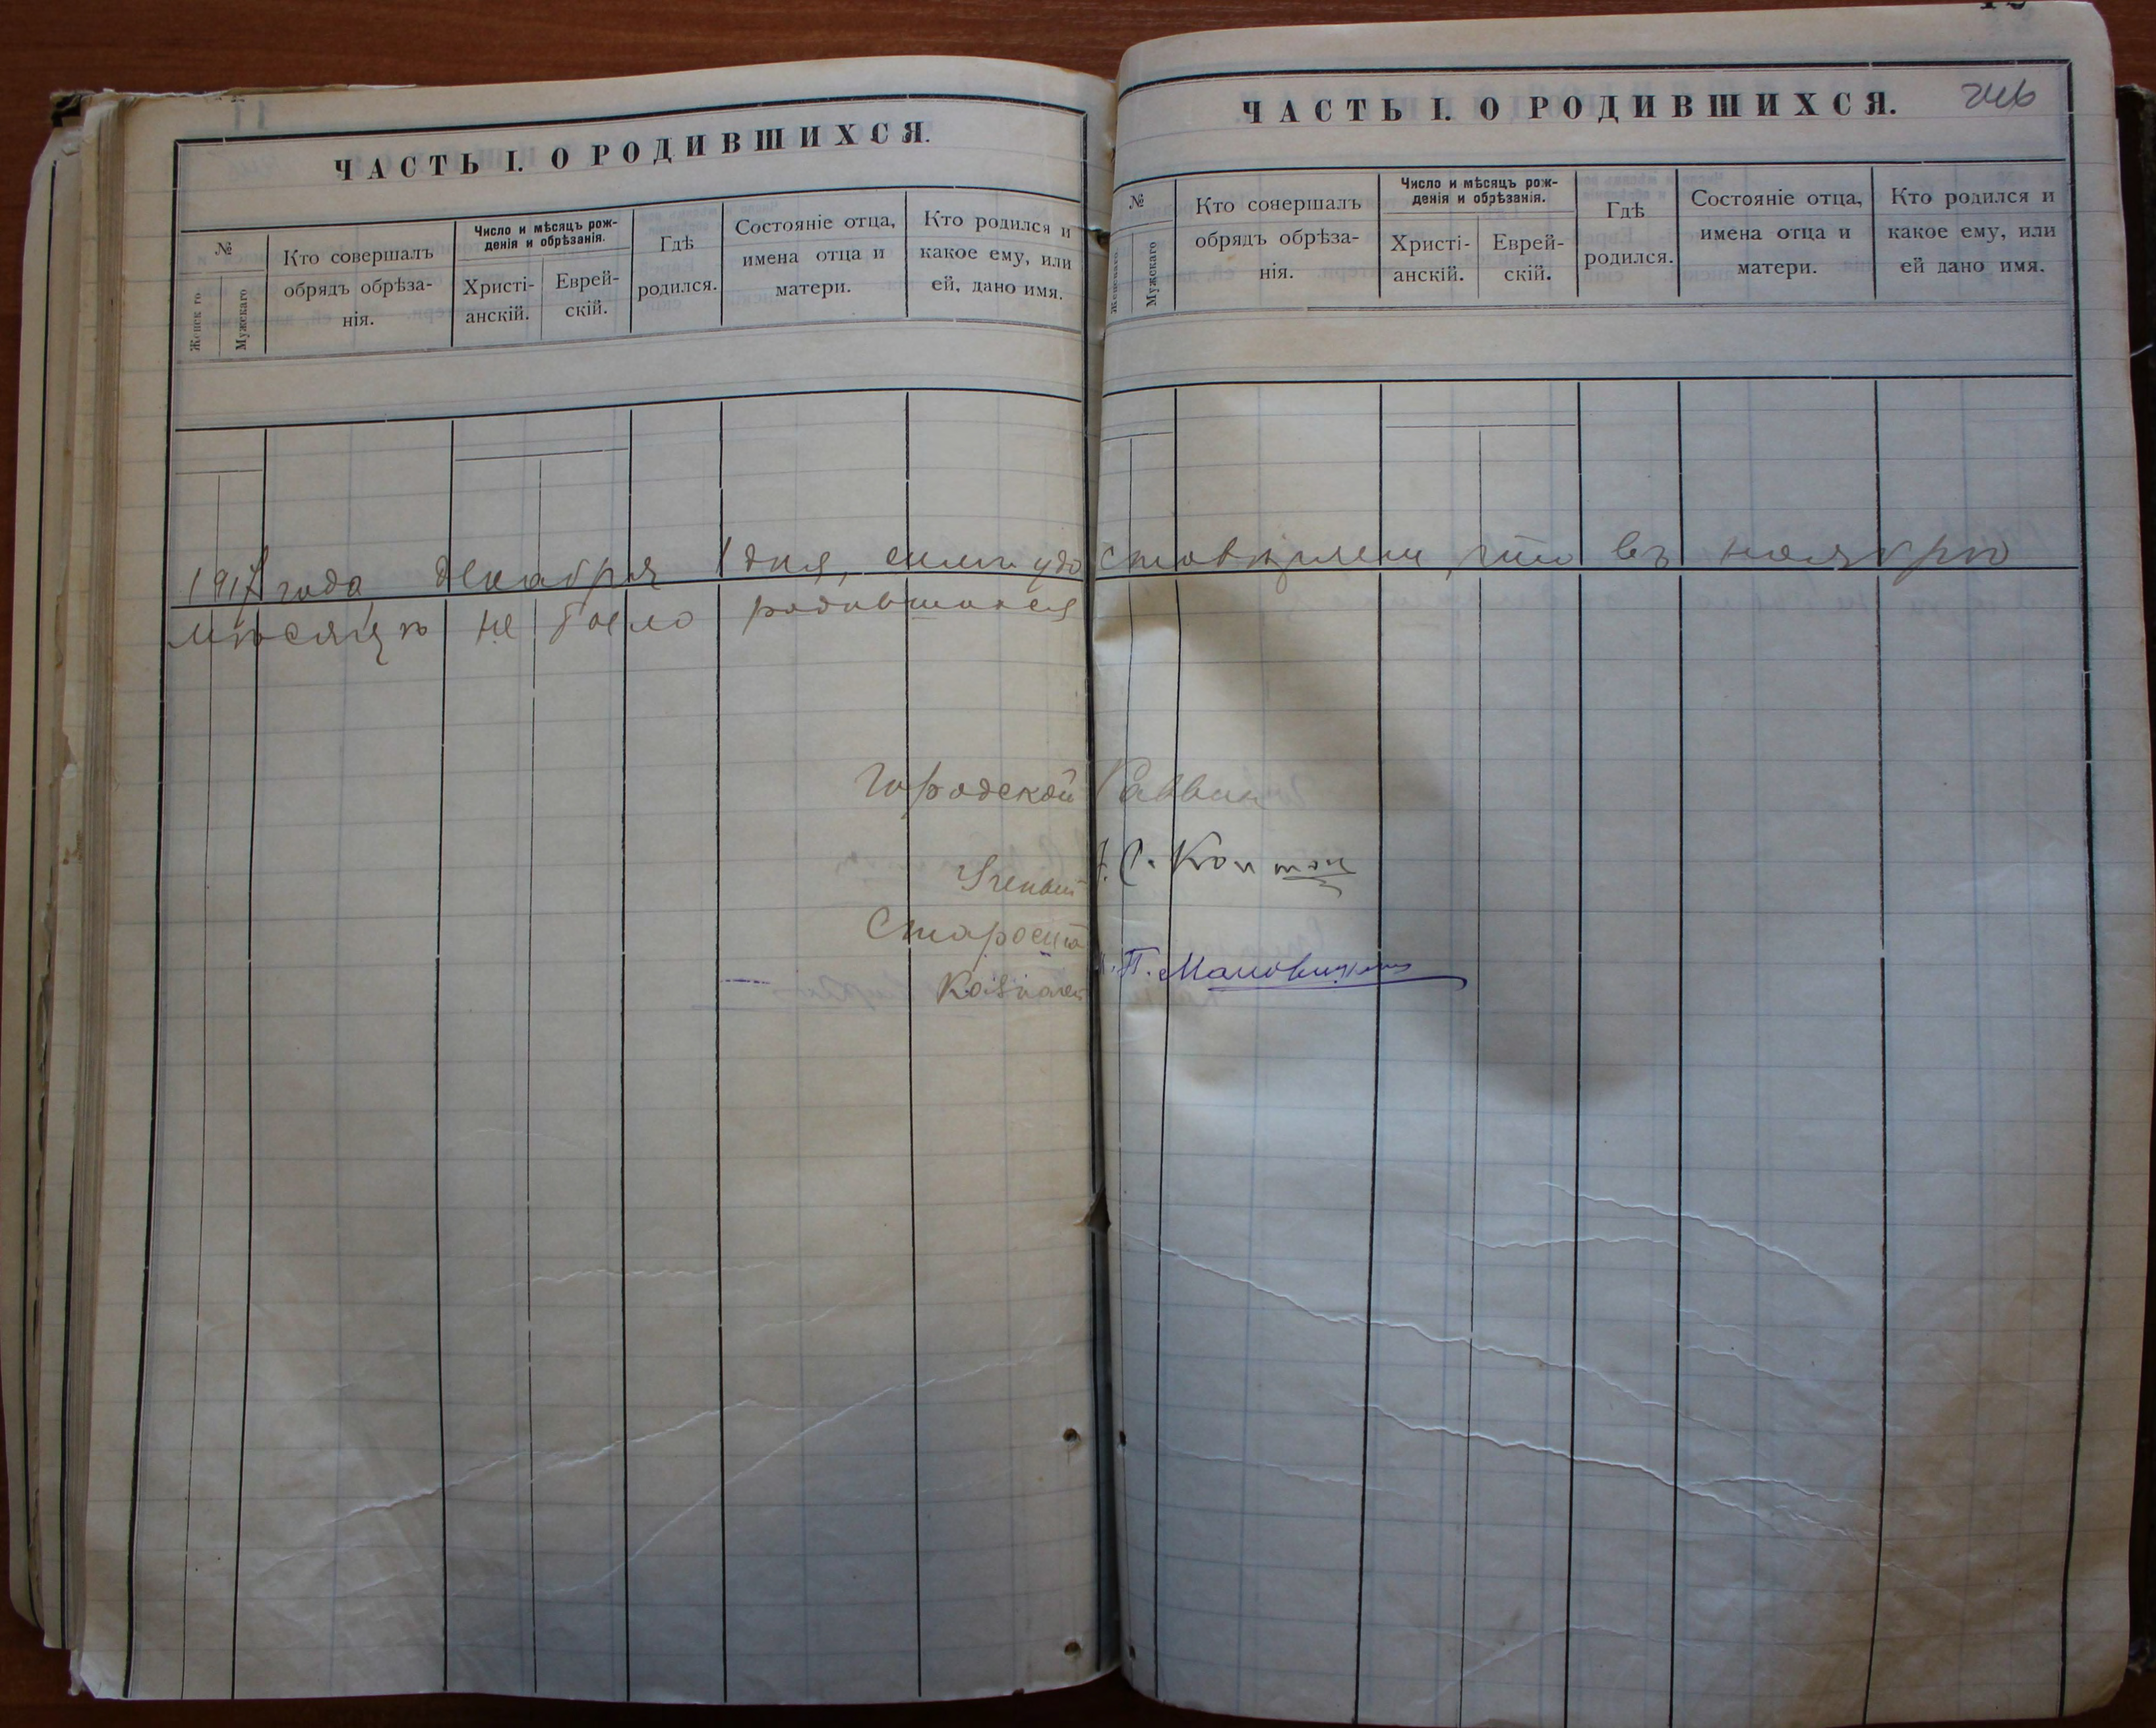 ЧАСТЬ I. О РОДИВШИХСЯ.
№
Женск го
Мужскаго
Кто совершалъ
обрядъ обрѣза-
нія.
Число и мѣсяцъ рож-
денія и обрѣзанія.
Христі-
анскій.
Еврей-
скій.
Гдѣ
родился.
Состояніе отца,
имена отца и
матери.
Кто родился и
какое ему, или
ей, дано имя.
ЧАСТЬ I. О РОДИВШИХСЯ.
246
№
Женскаго
Мужскаго
Кто сояершалъ
обрядъ обрѣза-
нія.
Число и мѣсяцъ рож-
денія и обрѣзанія.
Христі-
анскій.
Еврей-
скій.
Гдѣ
родился.
Состояніе отца,
имена отца и
матери.
Кто родился и
какое ему, или
ей дано имя.
1917 года декабря 1 дня, симъ удостовѣряемъ, что въ ноябрѣ
мѣсяцѣ не было родившихся
Городской Раввин
Ученый
Староста
Казначей